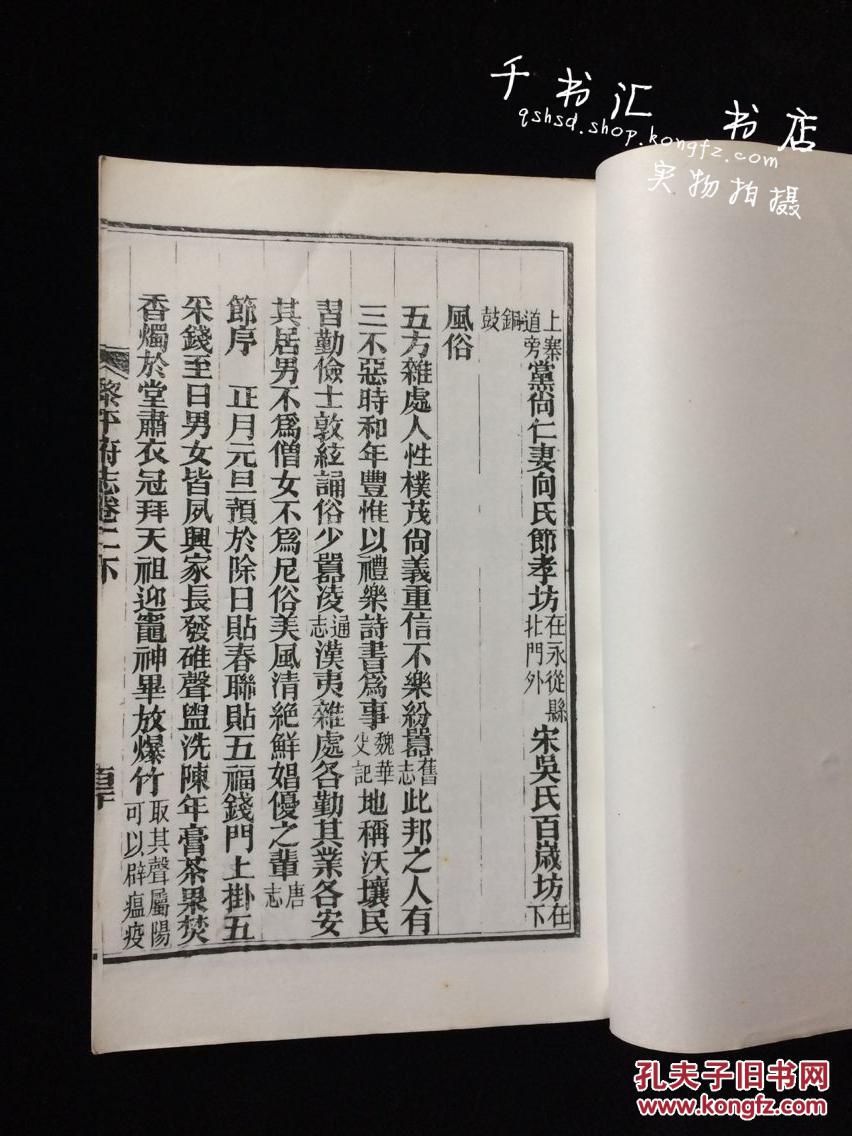 千书汇 书店
qshsd.shop.kongfz.com
实物拍摄
上寨道旁黨尙仁妻向氏節孝坊在永從縣北門外宋吳氏百歲坊在下
銅鼓
風俗
五方雜處人性樸茂尙義重信不樂紛囂舊志此邦之人有
三不惡時和年豐惟以禮樂詩書爲事魏華史記地稱沃壤民
習勤儉士敦絃誦俗少囂凌通志漢夷雜處各勤其業各安
其居男不爲僧女不爲尼俗美風清絶鮮娼優之輩唐志
節序 正月元旦預於除日貼春聯貼五福錢門上掛五
采錢至日男女皆夙興家長發碓聲盥洗陳年膏茶果焚
香燭於堂肅衣冠拜天祖迎竈神畢放爆竹取其聲屬陽可以辟瘟疫
黎平府志卷二下
孔夫子旧书网
www.kongfz.com